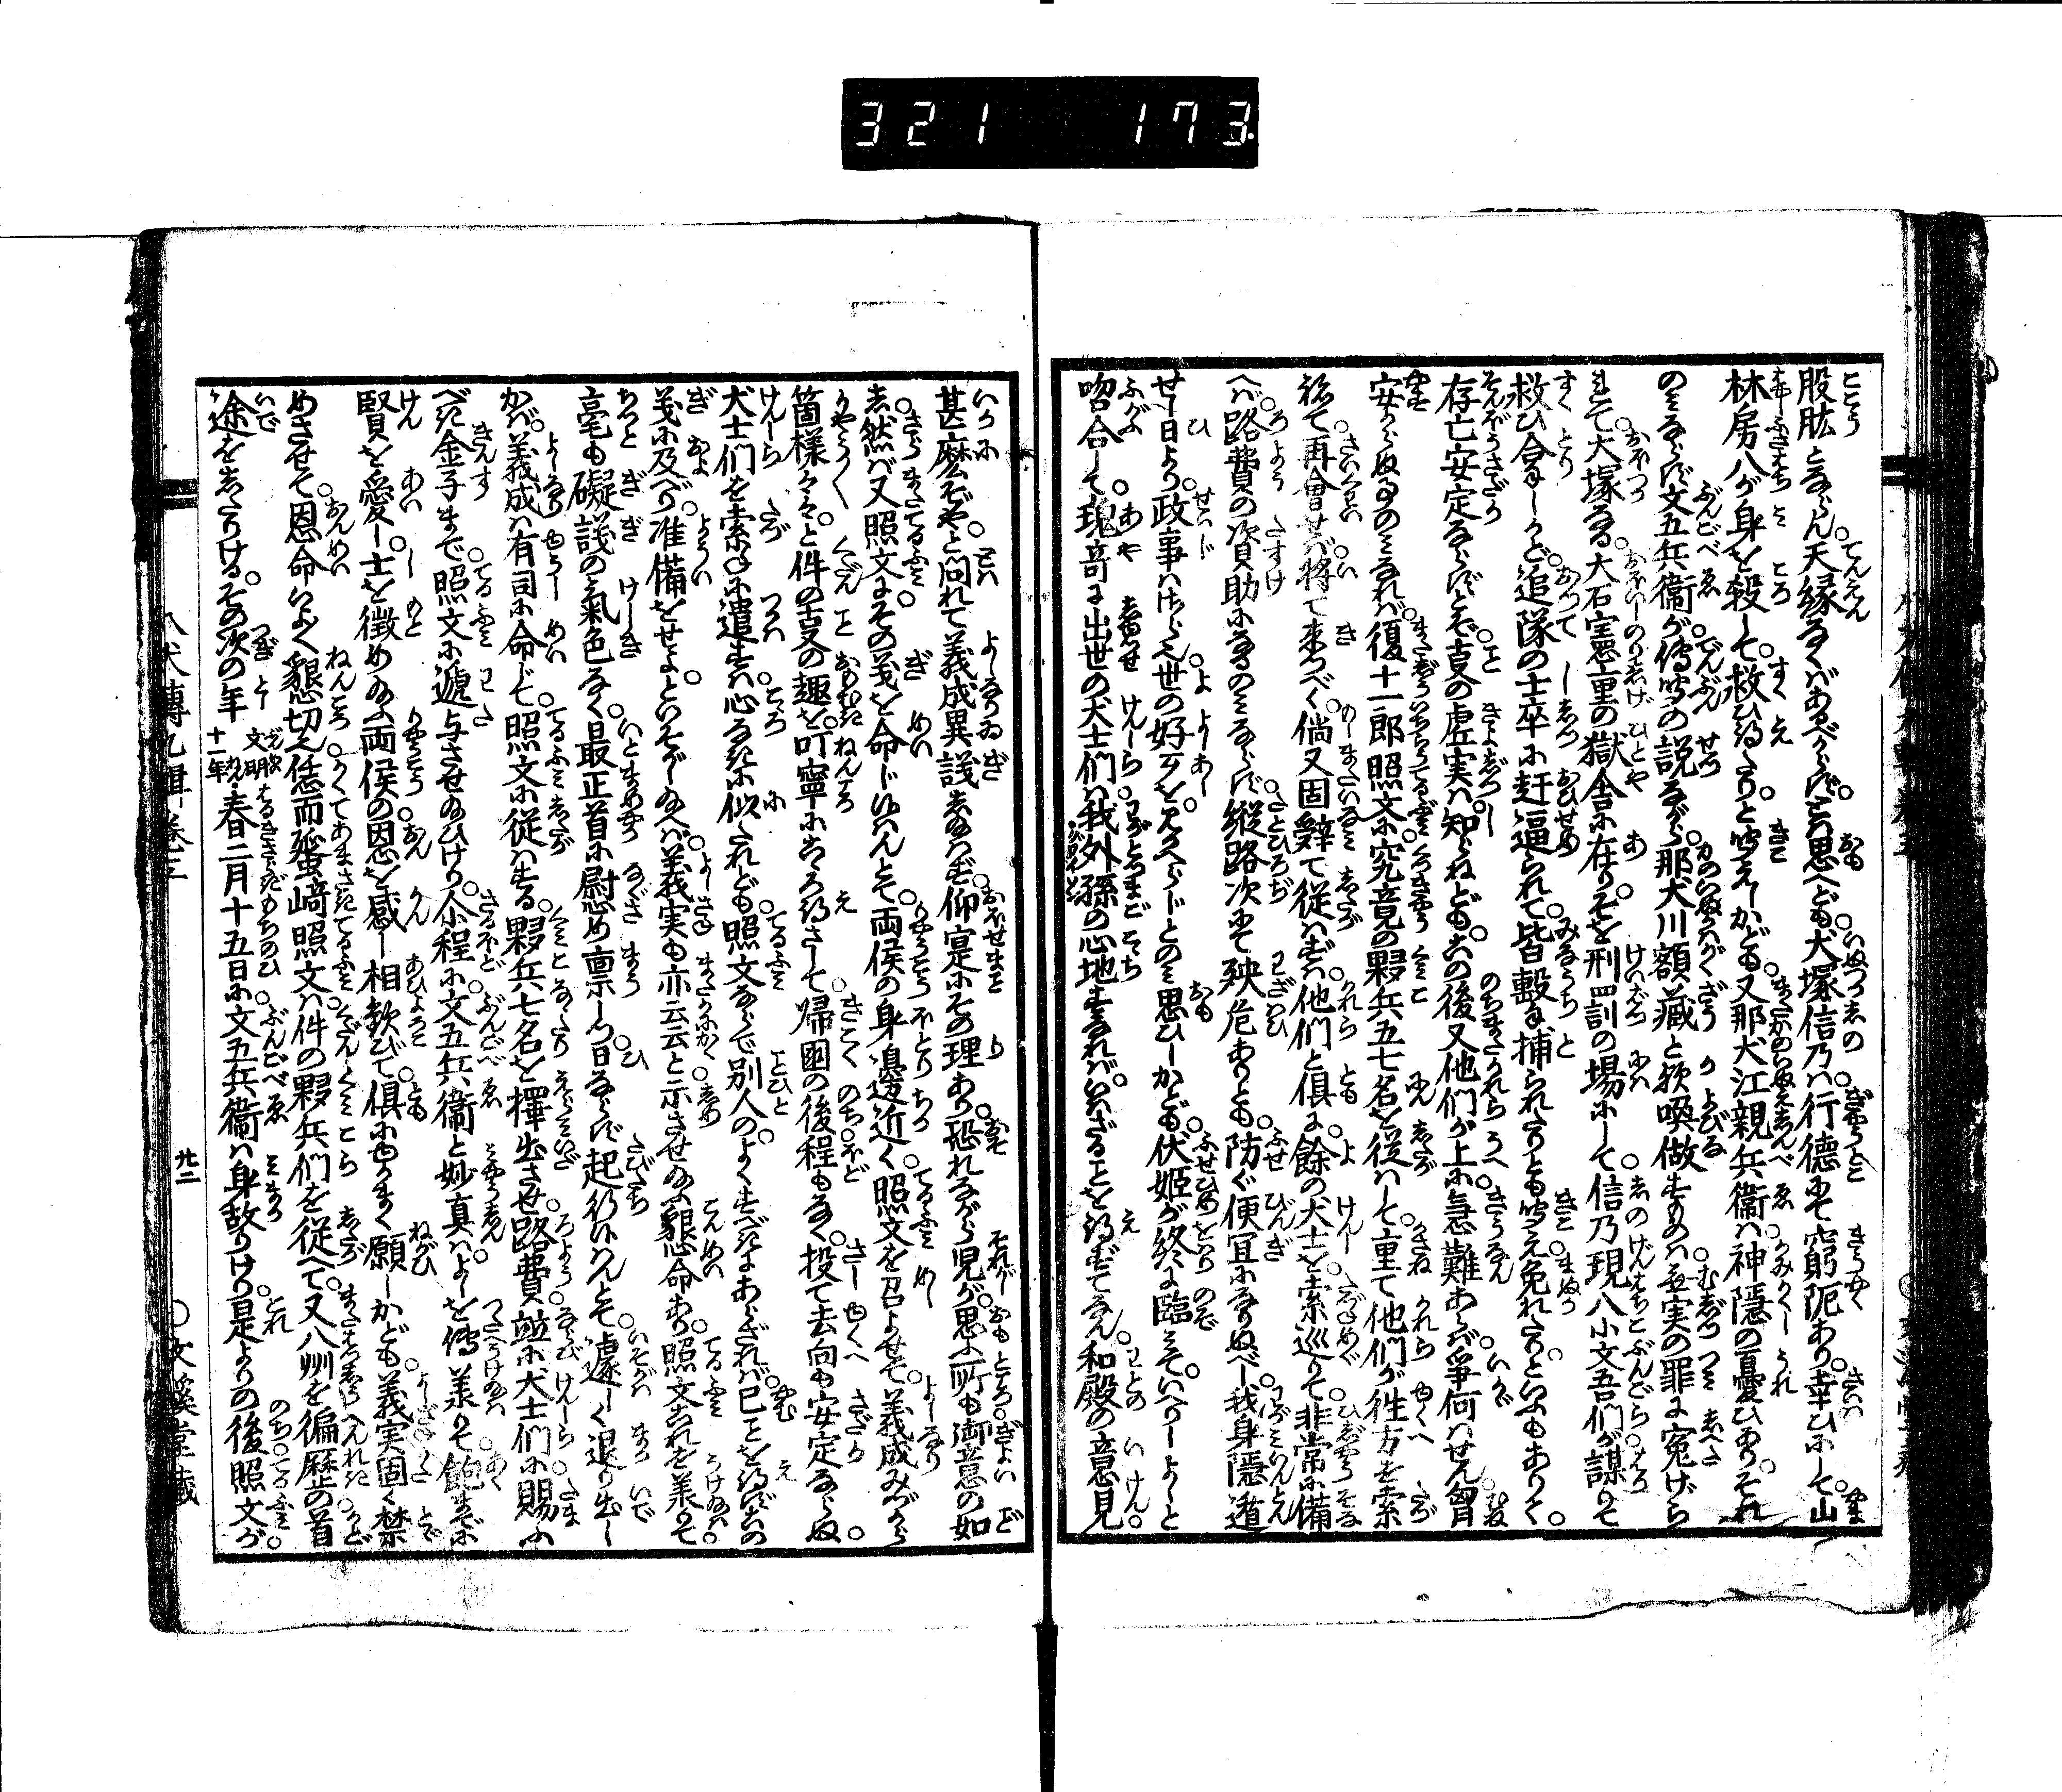 321 173
股肱とならん天縁なくばあるべからず。と思へども犬塚信乃は行徳にて窮阨あり。幸ひにして山
林房八が身を殺して。救ひ得たりと聞えしかども。又那犬江親兵衛は神隠の憂ひあり。それ
のみならず文五兵衛が傳聞の説ながら。那犬川額藏と喚做すものは無実の罪に寃げら
れて。大塚なる大石憲重の獄舎に在り。そを刑罰の場にして信乃現八小文吾們が謀りて
救ひ合ししかど。追隊の士卒に赶逼られて。皆撃れ捕られたりとも聞え免れたりといふもありて。
存亡安定ならずとぞ。叓の虚実は知らねども。この後又他們が上に急難あらば爭何はせん胷
安からぬ事のみなれば。復十一郎照文に究竟の夥兵五七名を從はして。重て他們が徃方を索
ねて。再會せば將て来つべく。倘又固辞て從はずは他們と倶に。餘の犬士を索巡りて。非常に備
へば。路費の資助になるのみならず。縦路次にて殃危ありとも。防ぐ便宜になりぬべし。我身隱遁
せし日より。政事はさら也世の好歹を。见べらじとのみ思ひしかども。伏姫が終に臨みて。いへりしよしと
吻合して。現竒に出世の犬士們は我外孫の心地すなれば。いはざることを得ずてなん和殿の意見
甚麼ぞや。と問れて義成異議あるべくもあらず。仰寔にその理あり。恐れながら児が思ふ所も御意の如
し。然ば又照文にその義を命じ候はんとて。両侯の身邊近く。照文を召よせて。義成みづから
箇様々々。と件の叓の趣を。叮寧にこころ得さして。歸國の後程もなく。投て去向も安定ならぬ。
犬士們を索ねに遣すは。心なきに似たれども。照文ならで別人の。よくすべきにあらざれば。已ことを得ずこの
義に及べり。准備をせよ。といそがし給へば。義実も亦云云と示させ給ふ懇命あり。照文これを美りて
毫も礙議の氣色なく。最正首に慰め稟しつ。日ならず起行候はんとて。遽しく退り出し
かば。義成は有司に命じて。照文に從はする。夥兵七名を擇出させ。路費並に犬士們に賜ふ
べき金子まで。照文に遞与させ給ひけり。介程に文五兵衛と妙真は。よしを傳美りて。飽まで
賢を愛し。士を徴め給ふ両侯の恩を感し相歓びて。倶にゆかまく願ひしかども。義実固く禁
めさせて。恩命いよいよ懇切也。恁而蜑﨑照文は。件の夥兵們を從へて。又八州を徧歴の首
途をしたりける。その次の年文明十一年春二月十五日に文五兵衛は身故りけり。是よりの後照文が。
八犬傳九輯卷三
廿二
文溪堂藏